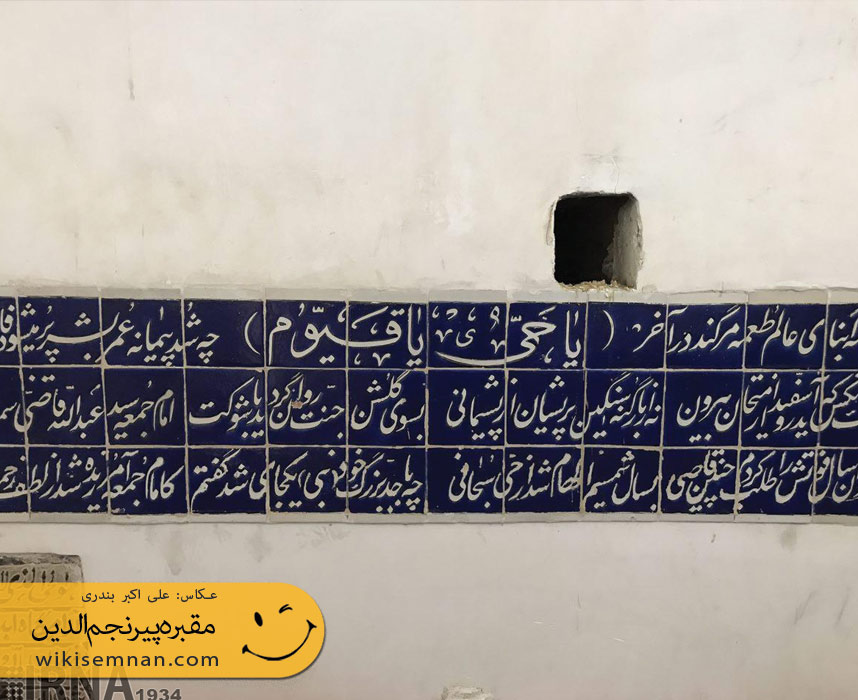 ابنای عالم طعمه مرگند در آخر ( یا حیّ یا قیّوم ) چه شد پیمانه عمر بشر پر میشود
آید روسفید از امتحان بیرون نه از بار گنه سنگین پریشان از پشیمانی بسوی گلشن جنت روان گردید با شوکت امام جمعه سید عبدالله قاضی
سال فوتش را طلب کردم چنین قاصی بسال شمسیم الهام شد از حی سبحانی چه با جد بزرگ خود ذبیحی یکجای شد گفتم که امام جمعه آمرزیده شد از لطف
عکاس: علی اکبر بندری
مقبره پیرنجم‌الدین
wikisemnan.com
IRNA 1934